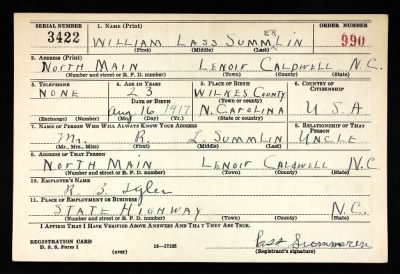 SERIAL NUMBER 1. NAME (Print) ORDER NUMBER
3422 WILLIAM LASS SUMMERLIN 990
(First) (Middle) (Last)
2. ADDRESS (Print)
NORTH MAIN LENOIR CALDWELL N.C.
(Number and street or R. F. D. number) (Town) (County) (State)
3. TELEPHONE 4. AGE IN YEARS 5. PLACE OF BIRTH 6. COUNTRY OF CITIZENSHIP
NONE 23 WILKES COUNTY
(Town or county)
DATE OF BIRTH
Aug 16 1917 N. CAROLINA U.S.A.
(Exchange) (Number) (Mo.) (Day) (Yr.) (State or country)
7. NAME OF PERSON WHO WILL ALWAYS KNOW YOUR ADDRESS 8. RELATIONSHIP OF THAT PERSON
Mr. R. L SUMMLIN UNCLE
(Mr., Mrs., Miss) (First) (Middle) (Last)
9. ADDRESS OF THAT PERSON
NORTH MAIN LENOIR CALDWELL N.C
(Number and street or R. F. D. number) (Town) (County) (State)
10. EMPLOYER'S NAME
R. B. Tyler
11. PLACE OF EMPLOYMENT OR BUSINESS
STATE HIGHWAY N.C.
(Number and street or R. F. D. number) (Town) (County) (State)
I AFFIRM THAT I HAVE VERIFIED ABOVE ANSWERS AND THAT THEY ARE TRUE.
REGISTRATION CARD
D. S. S. Form 1 16—17105 Lass
(over) (Registrant's signature)